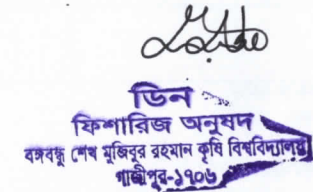 ডিন
ফিশারিজ অনুষদ
বঙ্গবন্ধু শেখ মুজিবুর রহমান কৃষি বিশ্ববিদ্যালয়
গাজীপুর-১৭০৬